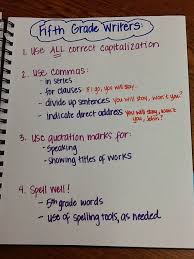 Fifth Grade Writers:
1. Use ALL correct capitalization
2. Use Commas:
- in series
- for clauses If I go, you will stay.
- divide up sentences You will stay, won't you?
- indicate direct address You will stay, won't you, John?
3. Use quotation marks for:
- speaking
- showing titles of works
4. Spell well!
- 5th grade words
- use of spelling tools, as needed